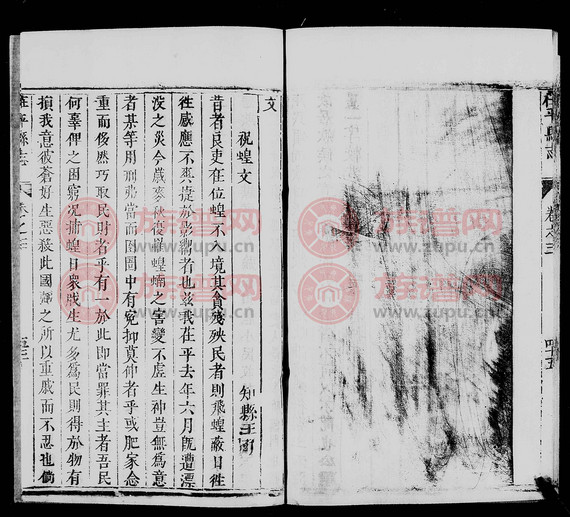 茌平縣志
卷之三
文
祝蝗文 知縣王
昔者良吏在位蝗不入境其貪殘殃民者則飛蝗蔽日往
往感應不爽於影響者也茲我茌平去年六月旣遭漂
沒之災今歲麥秋復罹蝗蝻之害變不虛生神豈無爲意
者某等用刑弗當而囹圄中有冤抑莫伸者乎或肥家念
重而侈然巧取民財者乎有一於此卽當罪其主者吾民
何辜俾之困窮况捕蝗日衆戕生尤多爲民則得於物有
損我意彼蒼好生惡殺此國之所以重戚而不忍也倘
茌平縣志
卷之三
族谱网
www.zupu.cn
族谱网
www.zupu.cn
族谱网
www.zupu.cn
族谱网
www.zupu.cn